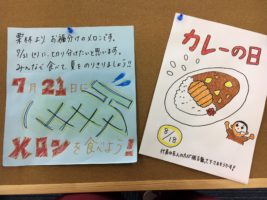 栗林より、お福分けのメロンです。
7/21(火)に、切り分けたいと思います。
みんなで食べて、夏をのりきりましょう!!
7月21日に
メロンを食べよう!
カレーの日
8/18